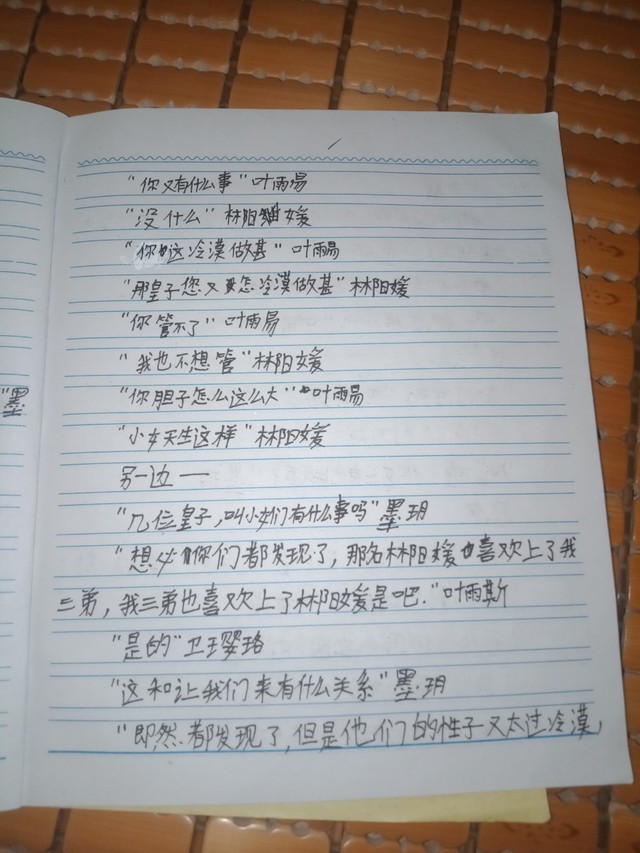 “你又有什么事”叶雨易
“没什么”林阳媛
“你这冷漠做甚”叶雨易
“那皇子您又怎冷漠做甚”林阳媛
“你管不了”叶雨易
“我也不想管”林阳媛
“你胆子怎么这么大”叶雨易
“小女天生这样”林阳媛
另一边——
“几位皇子，叫小女们有什么事吗”墨玥
“想必你们都发现了，那名林阳媛也喜欢上了我
三弟，我三弟也喜欢上了林阳媛是吧.”叶雨斯
“是的”卫璎珞
“这和让我们来有什么关系”墨玥
“即然都发现了，但是他们的性子又太过冷漠，
“墨